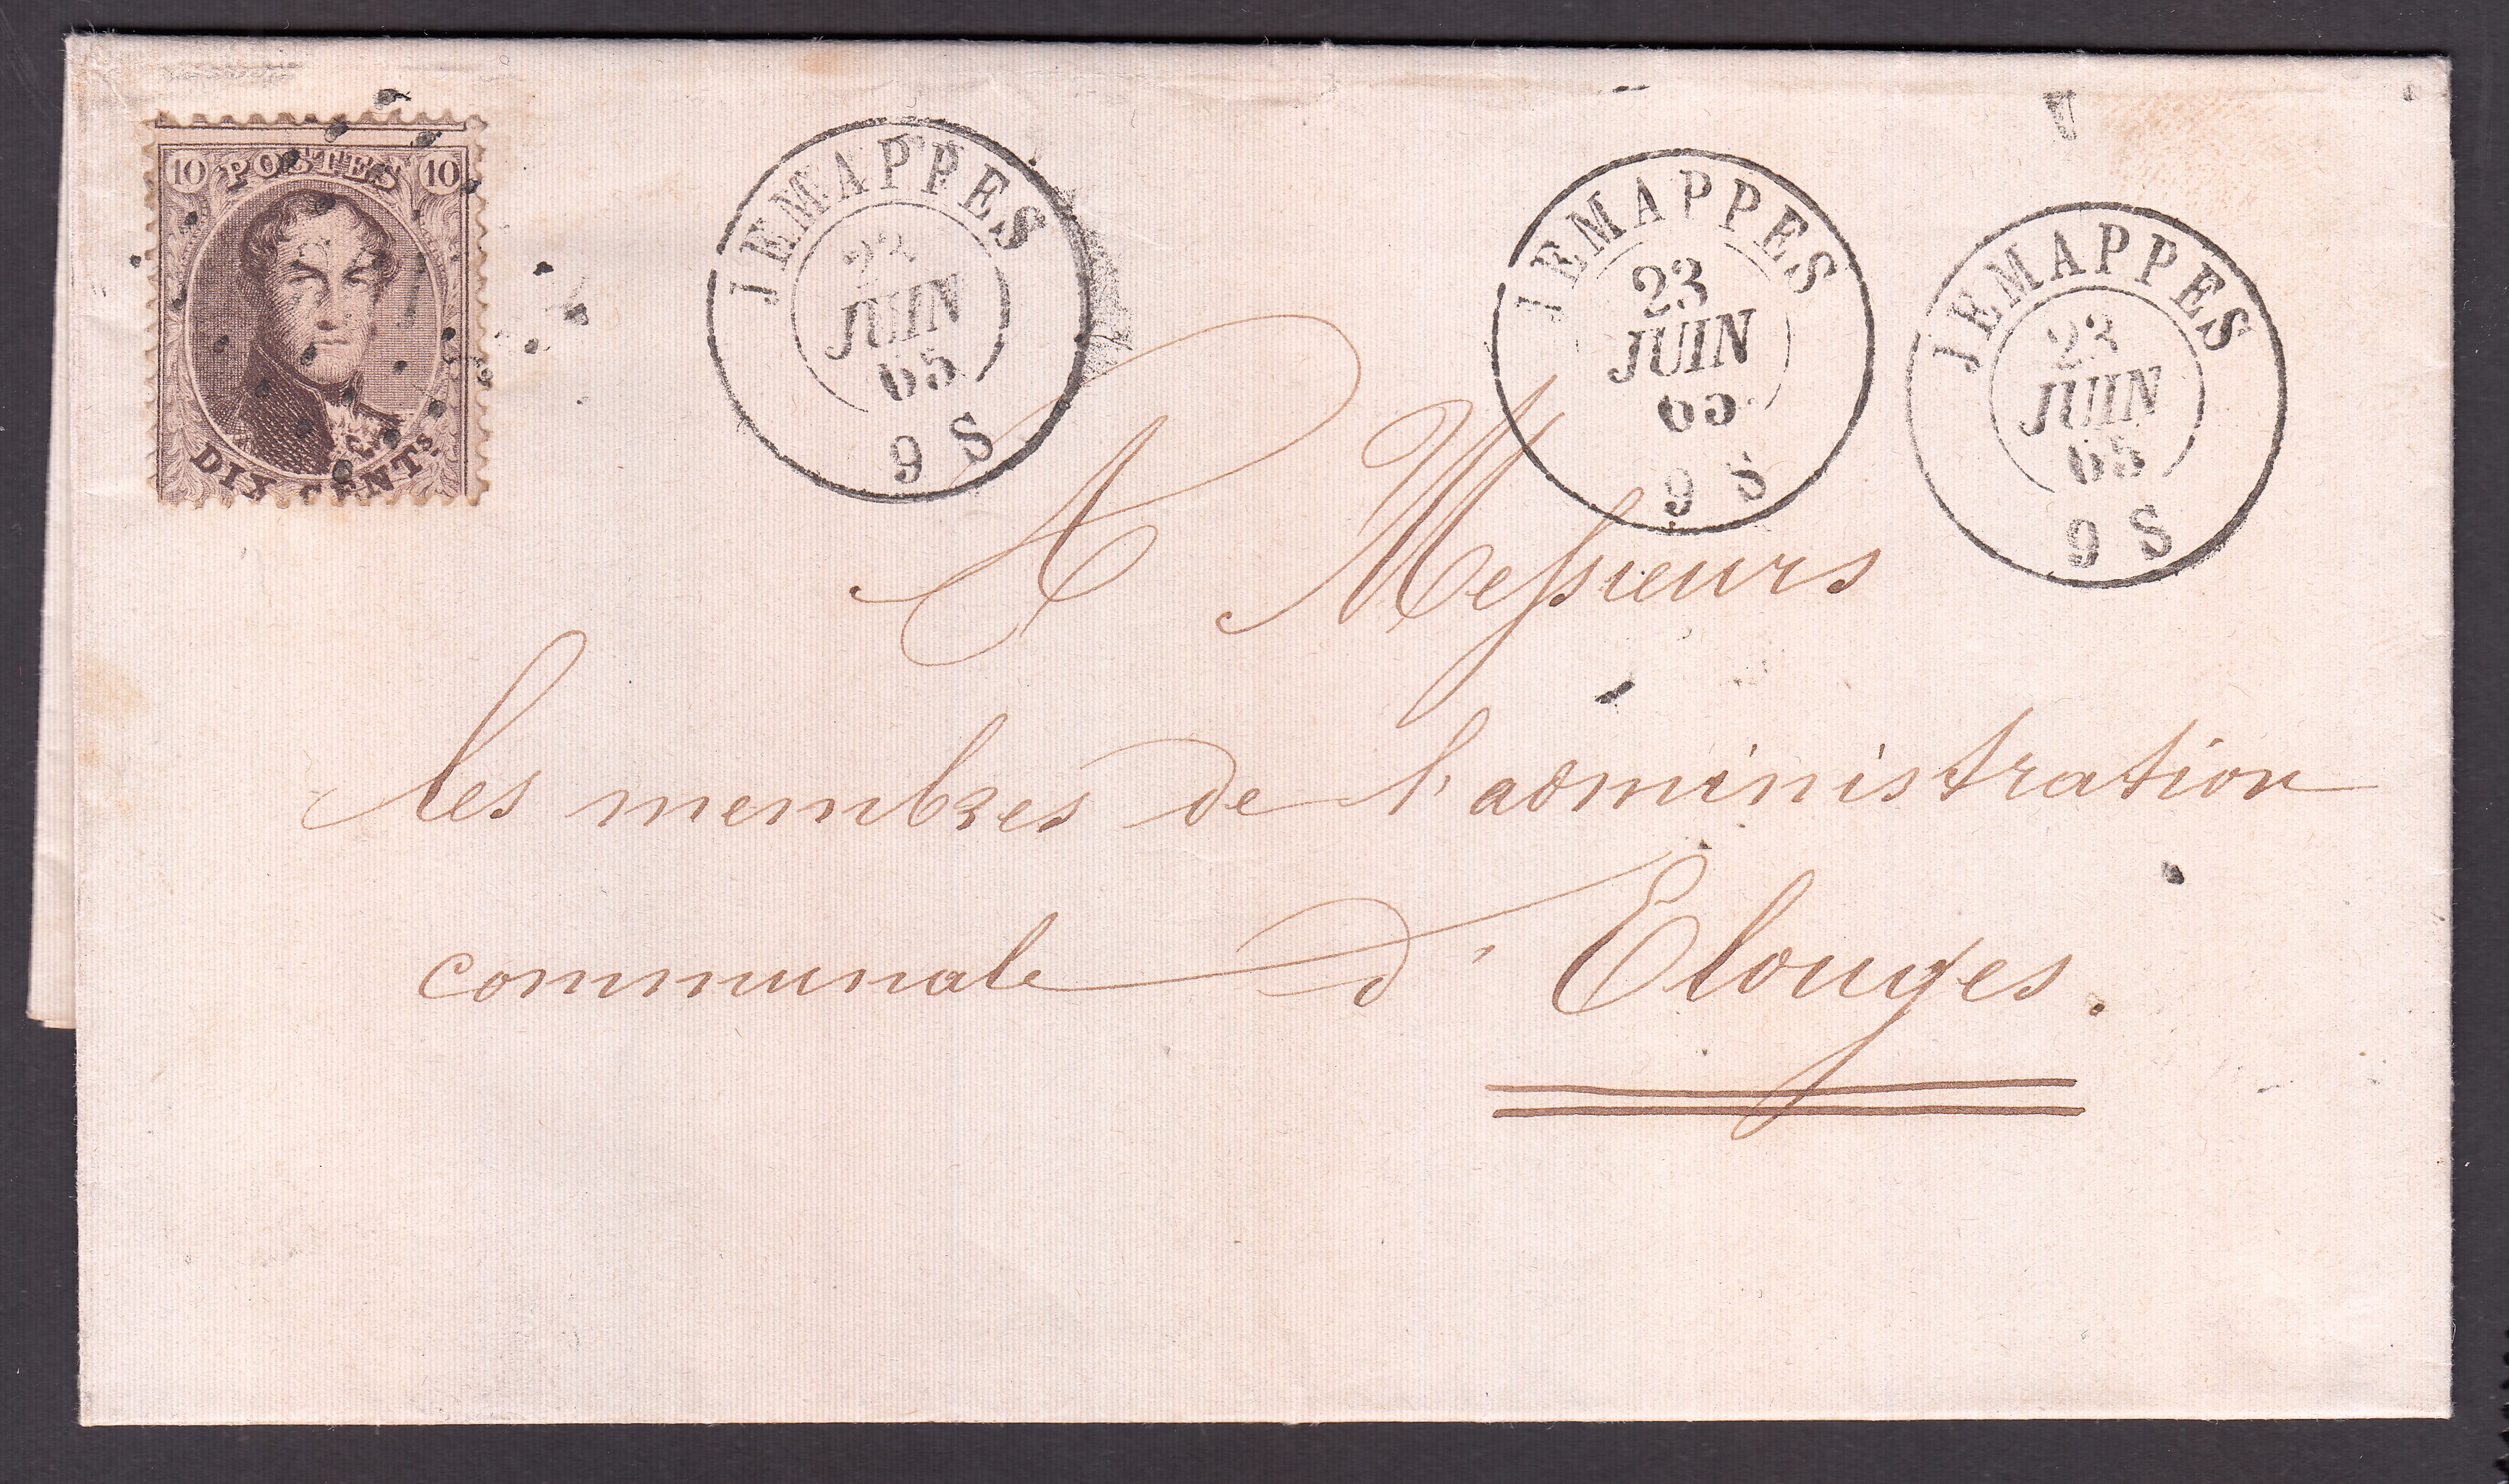 10 POSTES 10
DIX CENTS
JEMAPPES
23
JUIN
65
9 S
JEMAPPES
23
JUIN
65
9 S
JEMAPPES
23
JUIN
65
9 S
A Messieurs
les membres de l'administration
communale d'Elouges.